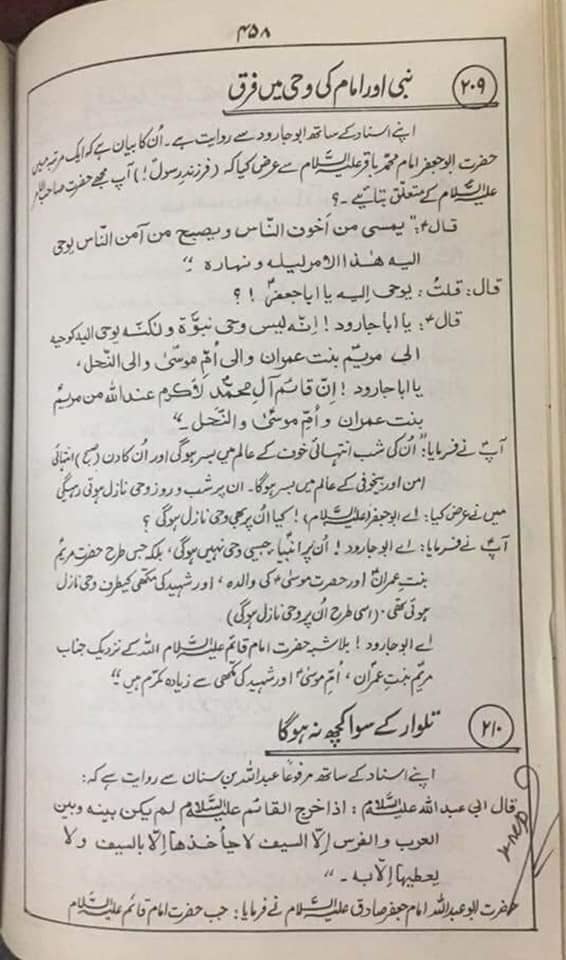 ۴۵۸
۲۰۹ نبی اور امام کی وحی میں فرق
اپنے اسناد کے ساتھ ابوجارود سے روایت ہے۔ اُن کا بیان ہے کہ ایک مرتبہ میں
حضرت ابوجعفر امام محمد باقر علیہ السلام سے عرض کیا کہ (فرزندِ رسولؐ!) آپ مجھے حضرت صاحب الامر
علیہ السلام کے متعلق بتایئے۔؟
قالؑ: "یمسی من أخوف الناس ویصبح من آمن الناس یوحی
الیہ ھٰذا الامر لیلہ و نھارہ۔"
قال: قلتُ: یوحی إلیہ یا ابا جعفرؑ!؟
قالؑ: یا ابا جارود! إنّہ لیس وحی نبوّة ولٰکنّہ یوحی الیہ کوحیہ
الی مریمؑ بنت عمران والی اُمّ موسٰیؑ والی النحل،
یا ابا جارود! إنّ قائم آل محمدؐ لأکرم عند اللہ من مریمؑ
بنت عمران و اُمّ موسٰیؑ والنحل۔"
آپؑ نے فرمایا: "اُن کی شب انتہائی خوف کے عالم میں بسر ہوگی اور اُن کا دن (صبح) انتہائی
امن اور بیخوفی کے عالم میں بسر ہوگا۔ ان پر شب و روز وحی نازل ہوتی رہیگی
میں نے عرض کیا: اے ابوجعفر (علیہ السلام)! کیا اُن پر بھی وحی نازل ہوگی؟
آپؑ نے فرمایا: اے ابوجارود! اُن پر انبیاءؑ جیسی وحی نہیں ہوگی، بلکہ جس طرح حضرت مریمؑ
بنت عمرانؑ اور حضرت موسٰیؑ کی والدہ، اور شہید کی مکھی کیطرف وحی نازل
ہوتی تھی۔ (اسی طرح اُن پر وحی نازل ہوگی)
اے ابوجارود! بلاشبہ حضرت امام قائم علیہ السلام اللہ کے نزدیک جناب
مریمؑ بنتِ عمران، اُمّ موسٰیؑ اور شہید کی مکھی سے زیادہ مکرّم ہیں۔"
۲۱۰ تلوار کے سوا کچھ نہ ہوگا
اپنے اسناد کے ساتھ مرفوعاً عبداللہ بن سنان سے روایت ہے کہ:
قال ابی عبد اللہ علیہ السلام: اذا خرج القائم علیہ السلام لم یکن بینہ وبین
العرب والفرس إلّا السیف لا یأخذھا إلّا بالسیف ولا
یعطیھا إلّا بہ۔"
حضرت ابوعبداللہ امام جعفر صادق علیہ السلام نے فرمایا: جب حضرت امام قائم علیہ السلام